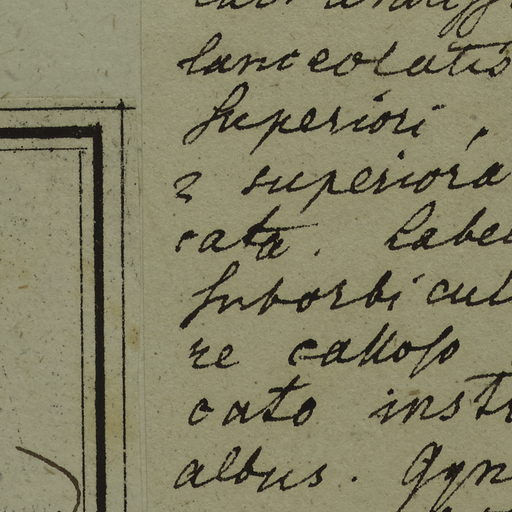 lanceolatis
Superiori,
2 superiora
cata. Labe
Suborbicul
re calloso
cato inst
albus. Gyn